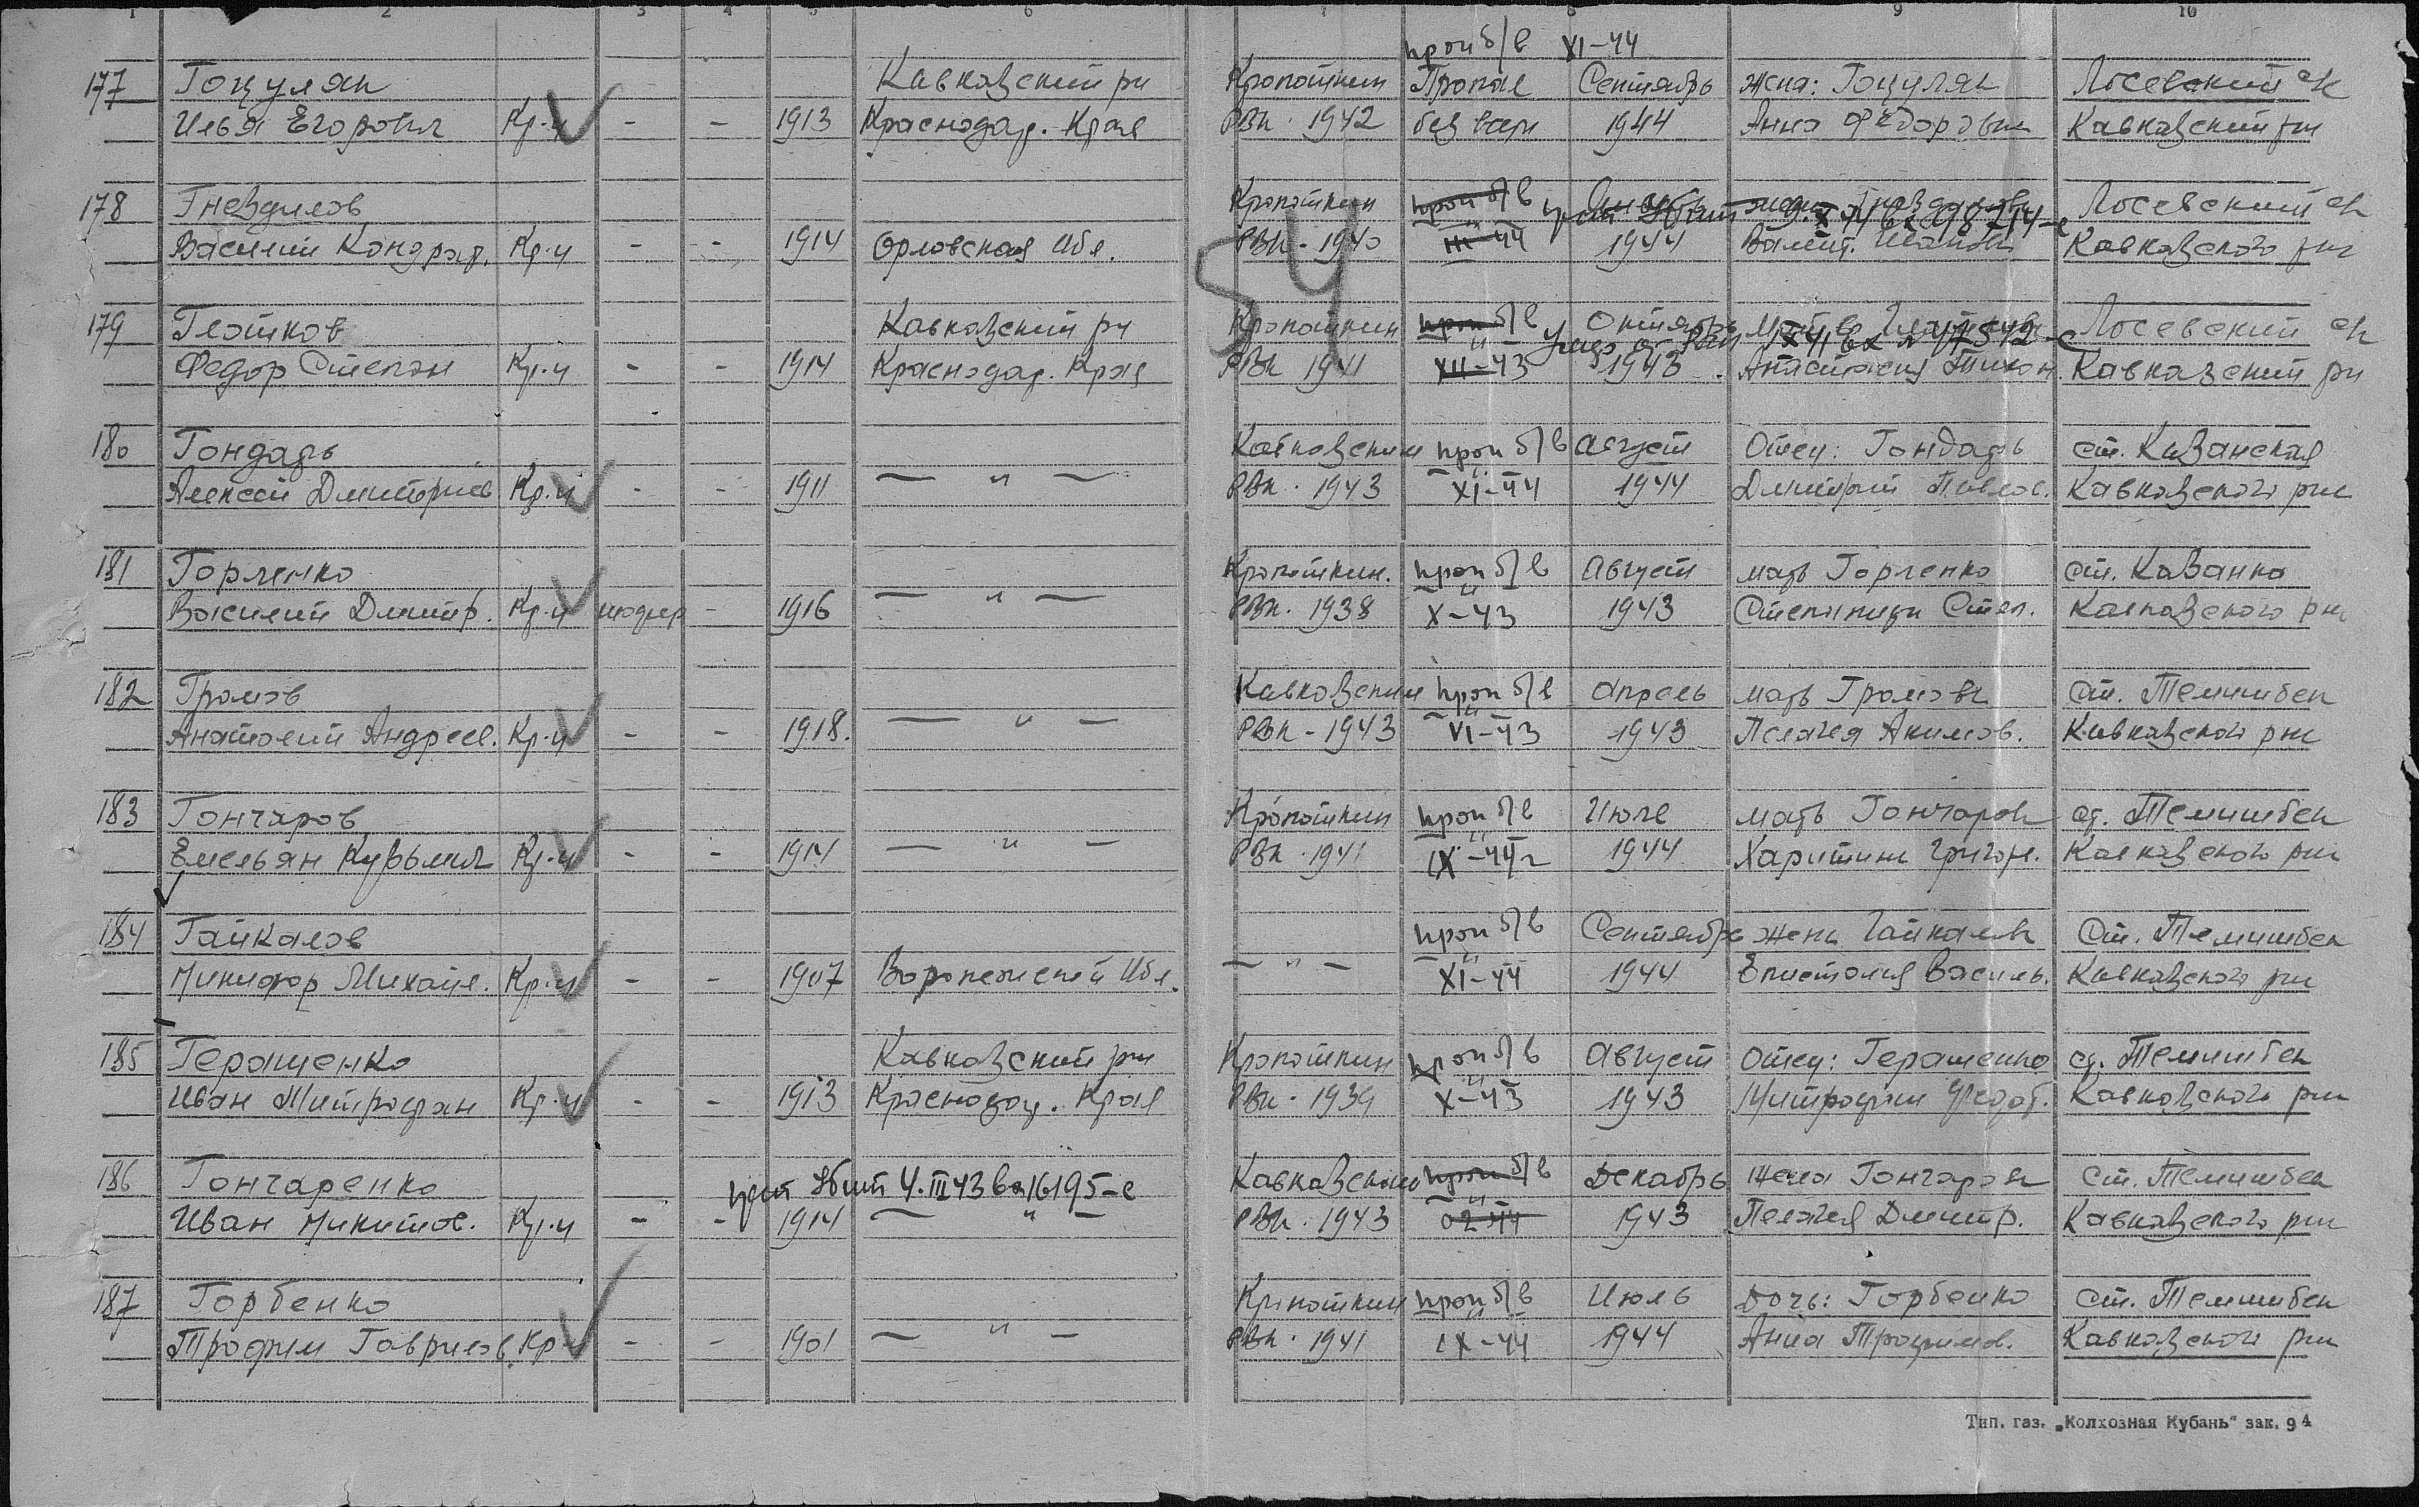 1 2 3 4 5 6 7 8 9 10
проп б/в XI-44
177 Гоцуляк Кавказский рн Кропоткин Пропал Сентябрь жена: Гоцуляк Лосевский ск
Илья Егорович Кр-ц - - 1913 Краснодар. Края РВК. 1942 без вести 1944 Анна Федоровна Кавказский рн
178 Гнездилов Кропоткин проп б/в жена Лосевский ск
Василий Кондрат. Кр-ц - - 1914 Орловская Обл. РВК - 1940 III-44 1944 Валент. Кавказского рна
54
179 Глотков Кавказский рн Кропоткин проп б/в Октябрь Лосевский ск
Федор Степан Кр-ц - - 1914 Краснодар. Края РВК 1941 XII-43 1943 Анастасия Тихон. Кавказский рн
180 Гондарь Кавказский проп б/в Август Отец: Гондарь ст. Казанская
Алексей Дмитриев Кр-ц - - 1911 — " — РВК. 1943 XI-44 1944 Дмитрий Павлов. Кавказского рна
181 Горленко Кропоткин. проп б/в Август мать Горленко ст. Казанка
Василий Дмитр. Кр-ц - 1916 — " — РВК. 1938 X-43 1943 Степанида Степ. Кавказского рна
182 Громов Кавказский проп б/в Апрель мать Громова ст. Темишбек
Анатолий Андреев. Кр-ц - - 1918. — " — РВК - 1943 VI-43 1943 Пелагея Акимов. Кавказского рна
183 Гончаров Кропоткин проп б/в Июле мать Гончарова ст. Темишбек
Емельян Кузьмич Кр-ц - - 1914 — " — РВК. 1941 IX-44г 1944 Харитина Григор. Кавказского рна
184 Гайкалов проп б/в Сентябрь жена Гайкалова Ст. Темишбек
Никифор Михайл. Кр-ц - - 1907 Воронежской Обл. — " — XI-44 1944 Епистолия Василь. Кавказского рна
185 Геращенко Кавказский рн Кропоткин проп б/в Август Отец: Геращенко ст. Темишбек
Иван Митрофан Кр-ц - - 1913 Краснодар. Края РВК. 1939 X-43 1943 Митрофан Федот. Кавказского рна
186 Гончаренко учт убит 4.III 43 вх 16195-с Кавказский проп б/в Декабрь Жена Гончарова ст. Темишбек
Иван Никитов. Кр-ц - - 1914 — " — РВК. 1943 02-44 1943 Пелагея Дмитр. Кавказского рна
187 Горбенко Кропоткин проп б/в Июль Дочь: Горбенко ст. Темишбек
Трофим Гаврилов. Кр-ц - - 1901 — " — РВК. 1941 IX-44 1944 Анна Трофимов. Кавказского рна
Тип. газ. „Колхозная Кубань" зак. 94